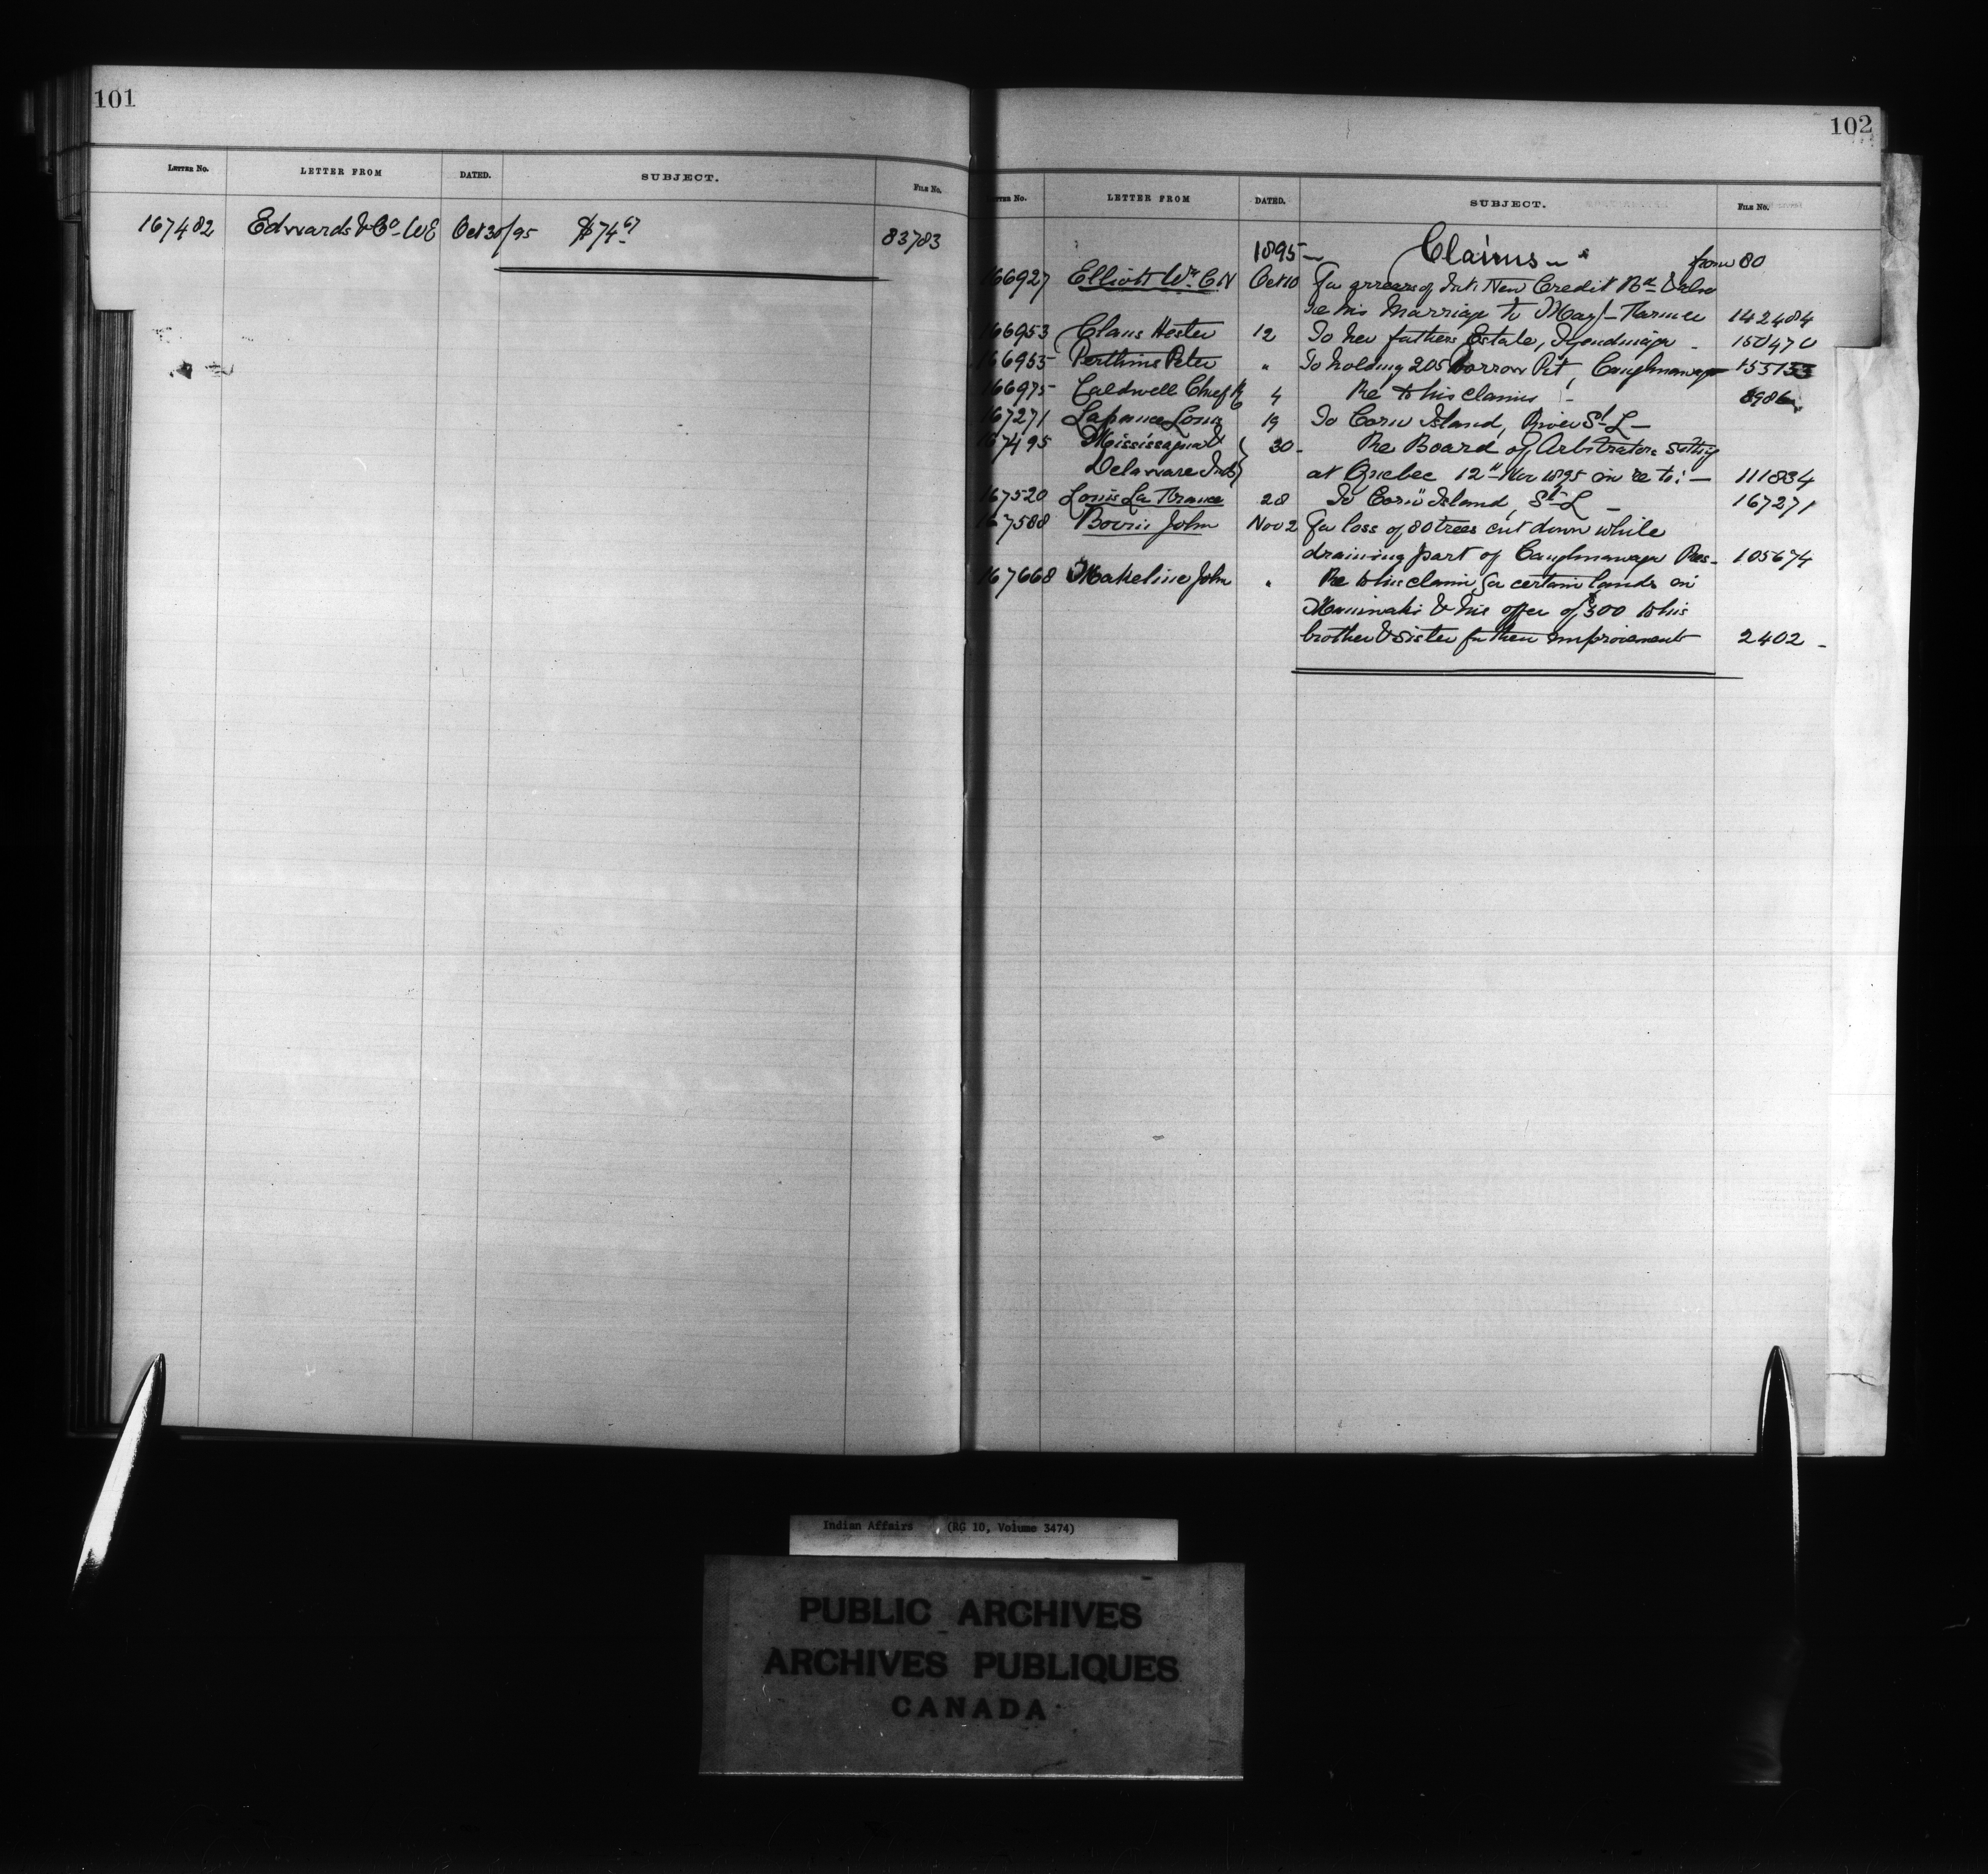 101
LETTER NO. LETTER FROM DATED. SUBJECT. FILE NO.
167482 Edwards & Co. W E Oct 30/95 $74.67 83783
102
LETTER NO. LETTER FROM DATED. SUBJECT. FILE NO.
1895 Claims from 80
166927 Elliott Wm. C N Oct 10 For arrears of Int. New Credit Bd. & also
re his marriage to Mary Turner 142484
166953 Claus Hester 12 To her fathers Estate, Tyendinaga 150470
166955 Peter " To holding 205 Borrow Pit, Caughnawaga
166975 Caldwell Chief 4 Re to his claims 8986
167271 Louis 19 To Corn Island, River St. L
167495 Mississagua & 30 Re Board of Arbitrators sitting
Delaware Inds at Quebec 12th Nov 1895 in re to: 111834
167520 Louis La France 28 To Corn Island, St. L 167271
167588 John Nov 2 For loss of 80 trees cut down while
draining part of Caughnawaga Res. 105674
167668 John " Re to his claim for certain lands in
Maniwaki & his offer of $300 to his
brother & sister for their improvements 2402
Indian Affairs (RG 10, Volume 3474)
PUBLIC ARCHIVES
ARCHIVES PUBLIQUES
CANADA